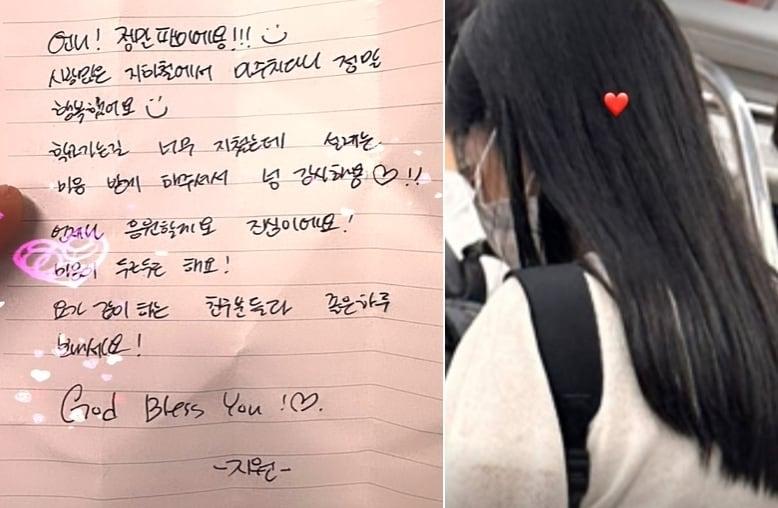 언니! 정말 팬이에용!!!
사랑많은 지하철에서 마주치다니 정말
행복했어요
학교가는길 너무 지쳤는데 설레는
마음 받게 해주셔서 넝 감사해용♡!!
언제나 응원할게요 진심이에요!
마음이 두근두근 해요!
요가 같이 하는 친구분들과 좋은하루
보내세요!
God Bless You !♡.
-지원-